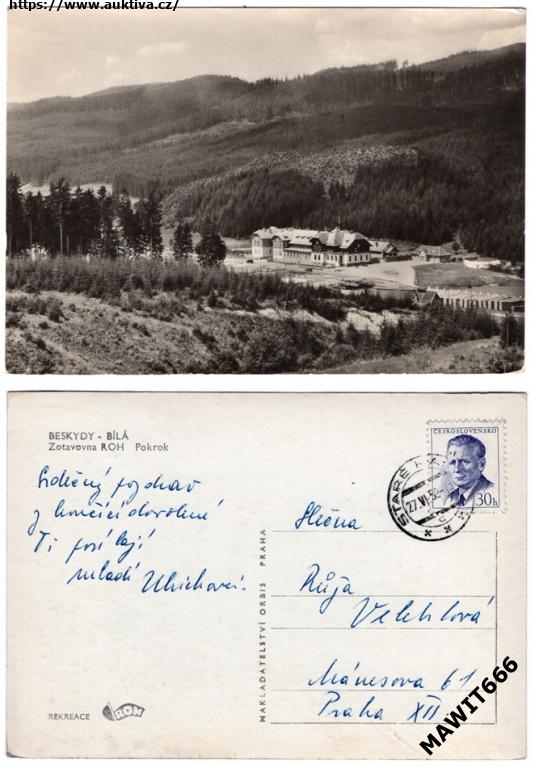 https://www.auktiva.cz/
BESKYDY - BÍLÁ
Zotavovna ROH Pokrok
Srdečný pozdrav
z končící dovolené
Ti posílají
mladí Ulrichovi.
ČESKOSLOVENSKO
30h
STARÉ
27.VI.58
Slečna
Růža
Velehlová
Mánesova 61
Praha XII
NAKLADATELSTVÍ ORBIS PRAHA
REKREACE ROH
MAWIT666